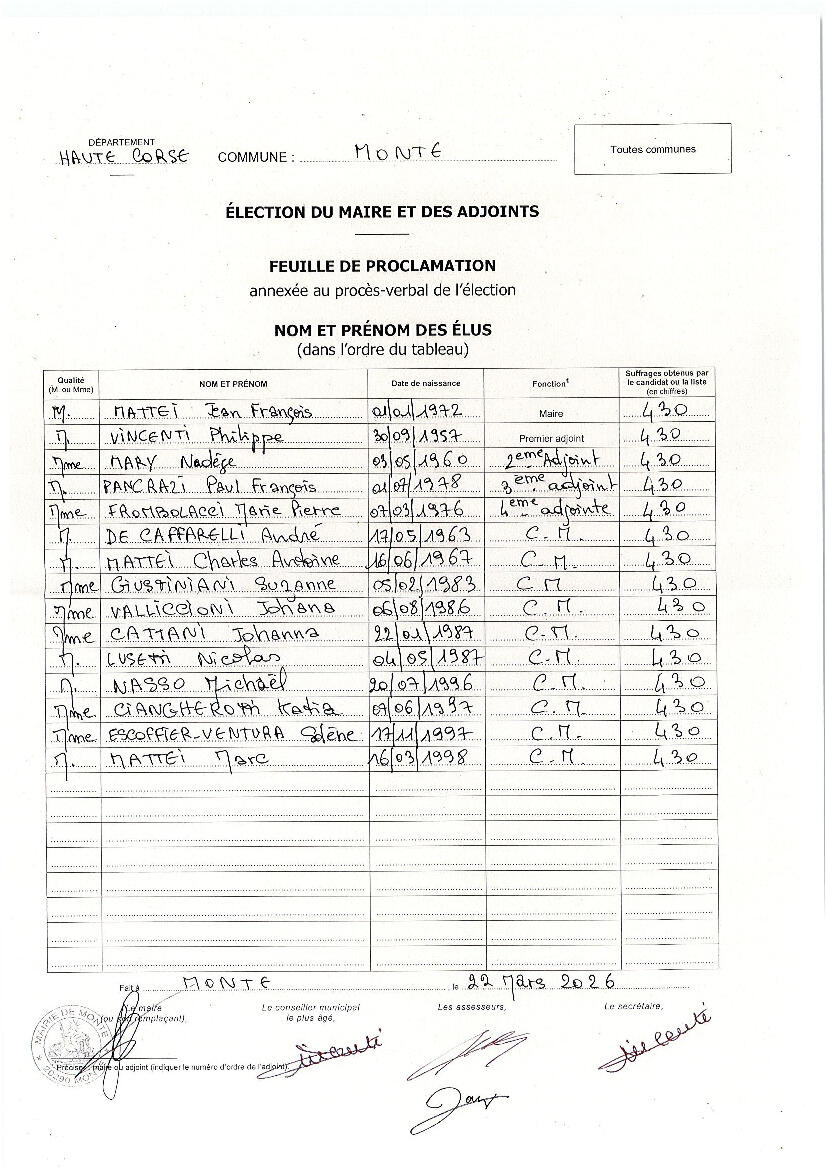 DÉPARTEMENT
HAUTE CORSE
COMMUNE : MONTE
Toutes communes
ÉLECTION DU MAIRE ET DES ADJOINTS
FEUILLE DE PROCLAMATION
annexée au procès-verbal de l'élection
NOM ET PRÉNOM DES ÉLUS
(dans l'ordre du tableau)
Qualité (M. ou Mme) NOM ET PRÉNOM Date de naissance Fonction1 Suffrages obtenus par le candidat ou la liste (en chiffres)
M. MATTEI Jean François 01/01/1972 Maire 430
M. VINCENTI Philippe 30/09/1957 Premier adjoint 430
Mme MARY Nadège 03/05/1960 2eme Adjoint 430
M. PANCRAZI Paul François 01/07/1978 3eme adjoint 430
Mme FROMBOLACCI Marie Pierre 07/03/1976 4eme adjointe 430
M. DE CAFFARELLI André 17/05/1963 C.M. 430
M. MATTEI Charles Antoine 16/06/1967 C.M. 430
Mme GIUSTINIANI Suzanne 05/02/1983 C M 430
Mme VALLICCIONI Johana 06/08/1986 C.M. 430
Mme CATTANI Johanna 22/01/1987 C.M. 430
M. LUSETTI Nicolas 04/05/1987 C.M. 430
M. NASSO Michaël 20/07/1996 C.M. 430
Mme Katia /06/1997 C.M. 430
Mme ESCOFFIER-VENTURA Solène 17/11/1997 C.M. 430
M. MATTEI Marc 16/03/1998 C.M. 430
Fait à MONTE, le 22 Mars 2026
Le maire (ou son remplaçant),
Le conseiller municipal le plus âgé,
Les assesseurs,
Le secrétaire,
Vincenti
Vincenti
MAIRIE DE MONTE
20290 MONTE
Précisez : maire ou adjoint (indiquer le numéro d'ordre de l'adjoint).